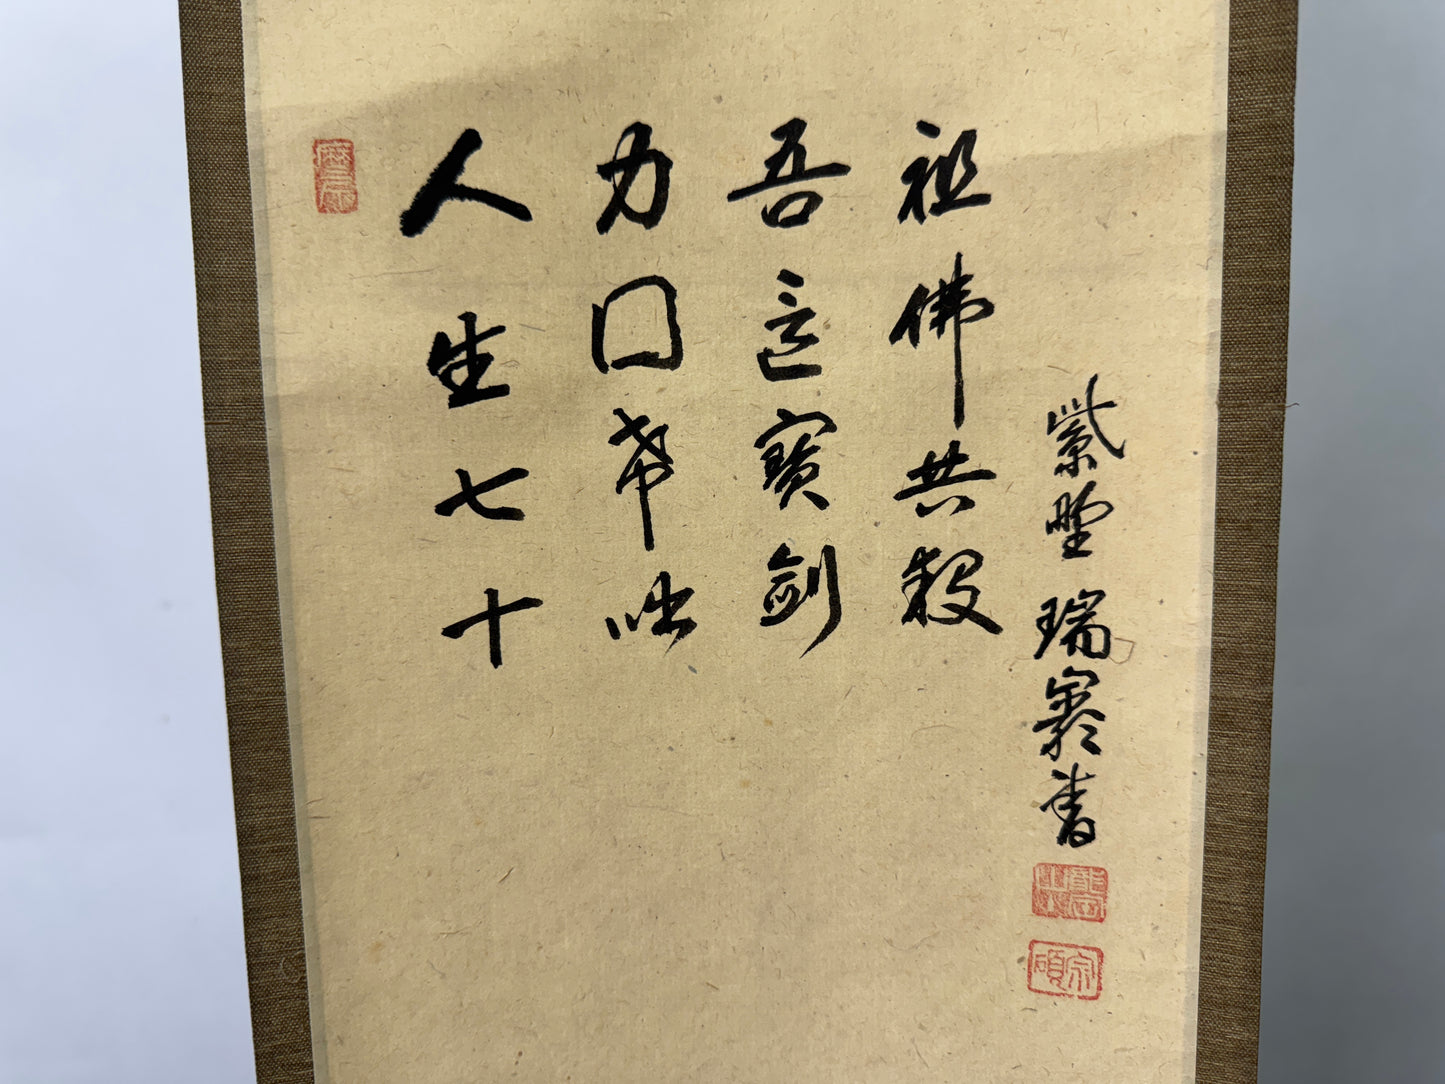 人生七十
力囗希咄
吾這寳劍
祖佛共殺
紫野 瑞巖書
宗碩